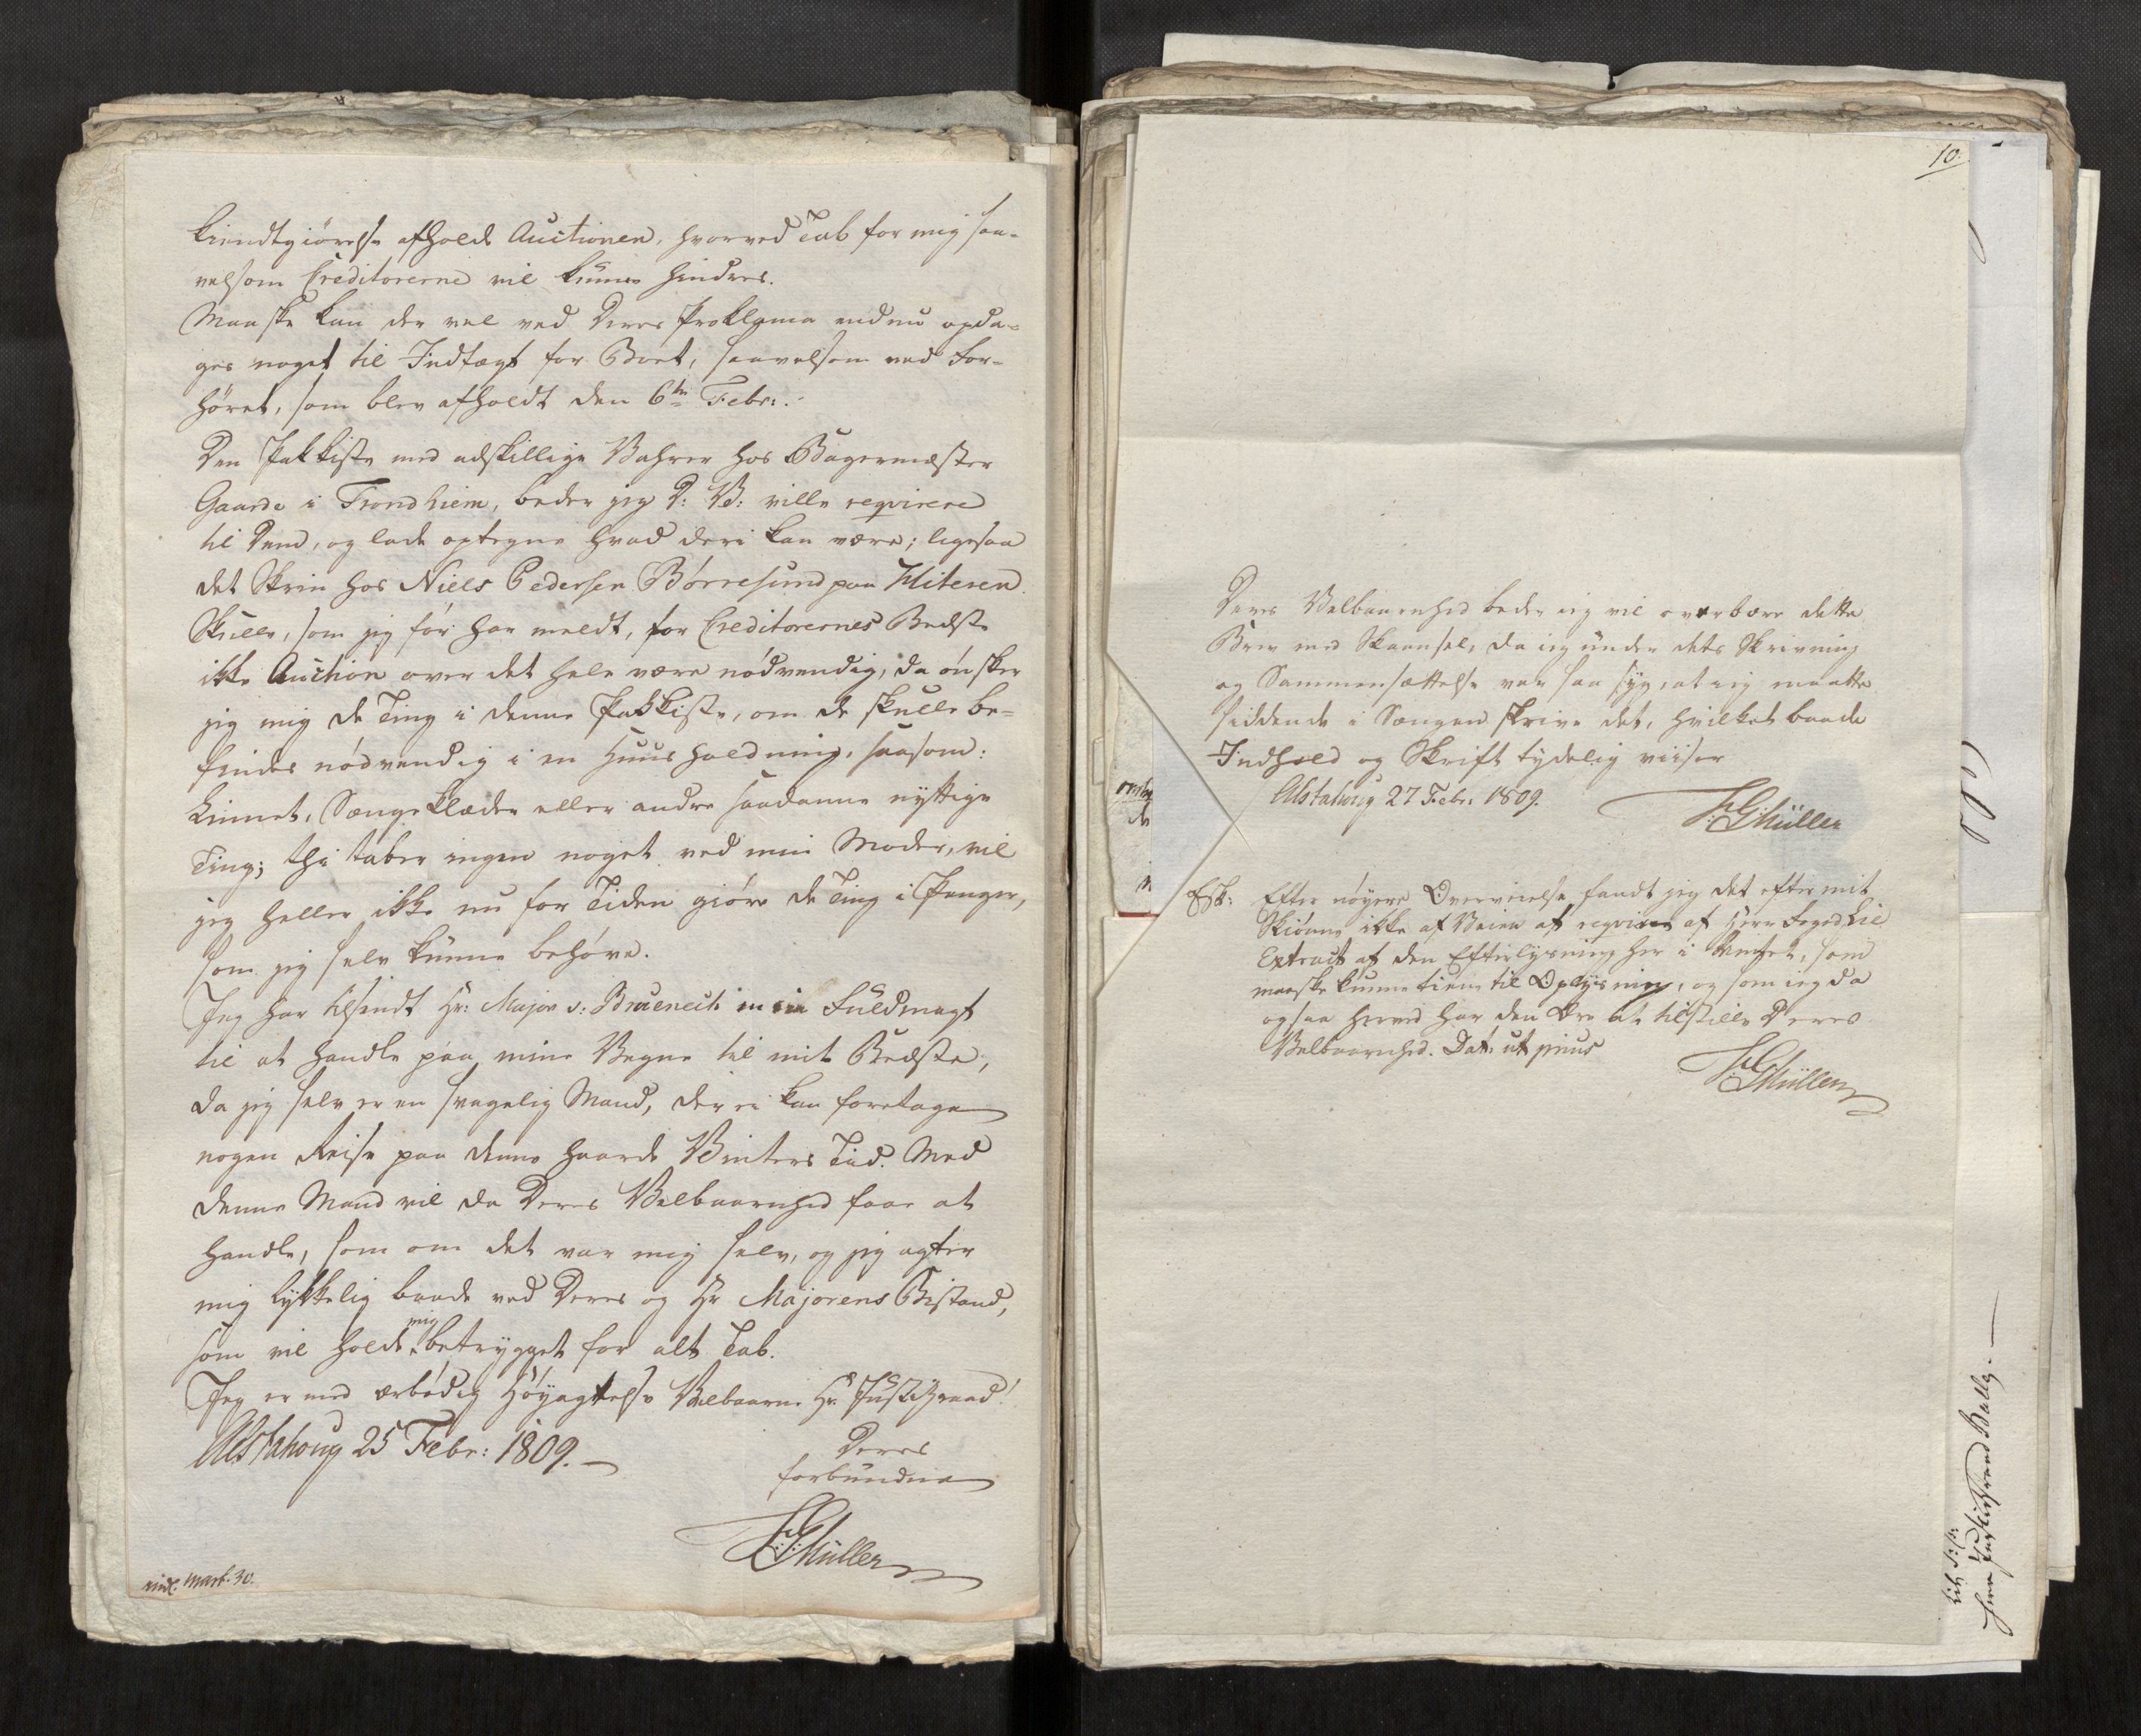 kiendtgiörelse afholde Auctionen, hvorved Tab for mig saa-
velsom Creditorerne vil kunne hindres.
Maaske kan der vel ved Deres Proklama endnu opda-
ges noget til Indtægt for Boet, saavelsom ved For-
höret, som blev afholdt den 6te Febr:.
Den Pakkiste med adskillige Vahrer hos Bagermester
Gaarde i Trondhiem, beder jeg D: V: ville requirere
til Dem, og lade optegne hvad deri kan være; ligesaa
det Skrin hos Niels Pedersen Börresund paa Hiteren.
Skulle, som jeg för har meldt, for Creditorernes Bedste
ikke Auction over det hele være nödvendig, da önsker
jeg mig de Ting i denne Pakkiste, om de skulle be-
findes nödvendig i en Huusholdning, saasom:
Linnet, Sengeklæder eller andre saadanne nyttige
Ting; thi taber ingen noget ved min Moder, vil
jeg heller ikke nu for Tiden giöre de Ting i Penger,
som jeg selv kunne behöve.
Jeg har tilsendt Hr: Major v: Bruenech min Fuldmagt
til at handle paa mine Vegne til mit Bedste,
da jeg selv er en svagelig Mand, der ei kan foretage
nogen Reise paa denne haarde Vinters Tid. Med
denne Mand vil da Deres Velbaarenhed faae at
handle, som om det var mig selv, og jeg agter
mig lykkelig baade ved Deres og Hr Majorens Bistand,
som vil holde mig betrygget for alt Tab.
Jeg er med ærbödig Höyagtelse Velbaarne Hr. Justitzraad!
Alstahoug 25 Febr: 1809.
Deres
forbundne
HGMüller
indl. Mart. 30.
10.
Deres Velbaarenhed beder jeg vil overbære dette
Brev med Skaansel, da jeg under dets Skrivning
og Sammensættelse var saa syg, at jeg maatte
siddende i Sengen skrive det, hvilket baade
Indhold og Skrift tydelig viiser
Alstahoug 27 Febr: 1809.
HGMüller
Esk: Efter nöyere Overveielse fandt jeg det efter mit
Skiönne ikke af Veien at requirere af Herr Foged Lie
Extract af den Efterlysning her i , som
maaske kunne tiene til Oplysning, og som jeg da
ogsaa herved har den Ære at tilstille Deres
Velbaarenhed. Dat: ut prius
HGMüller
Herr Justitzraad